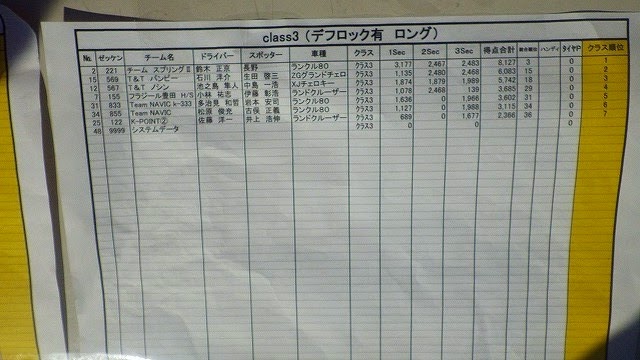 class3（デフロック有 ロング）
No. ゼッケン チーム名 ドライバー スポッター 車種 クラス 1Sec 2Sec 3Sec 得点合計 総合順位 ハンディ タイヤP クラス順位
2 221 チーム スプリングⅡ 鈴木 正京 長野 ランクル80 クラス3 3,177 2,467 2,483 8,127 3 0 1
15 569 T&T バンビー 石川 洋介 生田 啓三 ZGグランドチェロ クラス3 1,135 2,480 2,468 6,083 15 0 2
12 567 T&T ノシン 池之島 隼人 中島 一浩 XJチェロキー クラス3 1,874 1,879 1,989 5,742 18 0 3
7 155 フラジール豊田 H/S 小林 祐志 伊藤 彰浩 ランドクルーザー クラス3 1,078 2,468 139 3,685 29 0 4
31 833 Team NAVIC k-333 多治見 和哲 岩本 安司 ランクル80 クラス3 1,636 0 1,966 3,602 31 0 5
34 855 Team NAVIC 松原 俊充 古俣 正義 ランクル80 クラス3 1,127 0 1,988 3,115 34 0 6
25 122 K-POINT② 佐藤 洋一 井上 浩伸 ランドクルーザー クラス3 689 0 1,677 2,366 36 0 7
48 9999 システムデータ クラス3 0 0 0